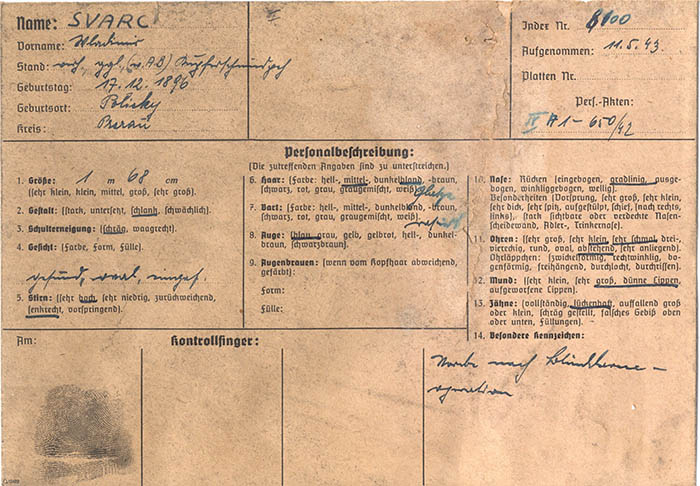 Name: SVARC
Vorname: Wladimir
Stand:
Geburtstag: 17.12.1896
Geburtsort:
Kreis: Beraun
Index Nr. 8100
Aufgenommen: 11.5.43.
Platten Nr.
Pers.-Akten:
IV A1 - 650/42
Personalbeschreibung:
(Die zutreffenden Angaben sind zu unterstreichen.)
1. Größe: 1 m 68 cm
(sehr klein, klein, mittel, groß, sehr groß).
2. Gestalt: (stark, untersetzt, schlank, schwächlich).
3. Schulterneigung: (schräg, waagrecht).
4. Gesicht: (Farbe, Form, Fülle).
gesund, oval,
5. Stirn: (sehr hoch, sehr niedrig, zurückweichend,
senkrecht, vorspringend).
6. Haar: (Farbe: hell-, mittel-, dunkelblond, -braun,
schwarz, rot, grau, graugemischt, weiß) Glatze
7. Bart: (Farbe: hell-, mittel-, dunkelblond, -braun,
schwarz, rot, grau, graugemischt, weiß). rasiert
8. Auge: (blau, grau, gelb, gelbrot, hell-, dunkel-
braun, schwarzbraun).
9. Augenbrauen: (wenn vom Kopfhaar abweichend,
gefärbt):
Form:
Fülle:
10. Nase: Rücken (eingebogen, gradlinig, ausge-
bogen, winkliggebogen, wellig).
Besonderheiten (Vorsprung, sehr groß, sehr klein,
sehr dick, sehr spitz, aufgestülpt, schief, (nach rechts,
links), stark sichtbare oder verdeckte Nasen-
scheidewand, Adler-, Trinkernase).
11. Ohren: (sehr groß, sehr klein, sehr schmal, drei-,
viereckig, rund, oval, abstehend, sehr anliegend).
Ohrläppchen: (zwickelförmig, rechtwinklig, bo-
genförmig, freihängend, durchlocht, durchrissen).
12. Mund: (sehr klein, sehr groß, dünne Lippen,
aufgeworfene Lippen).
13. Zähne: (vollständig, lückenhaft, auffallend groß
oder klein, schräg gestellt, falsches Gebiß oben
oder unten, Füllungen).
14. Besondere Kennzeichen:
Narbe nach Blinddarm-
operation
Am:
Kontrollfinger: